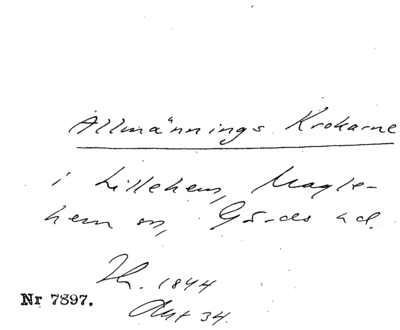 Allmännings Krokarne
i Lillehem, Magle-
hem sn, Gärds hd.
Th. 1844
Akt 34.
Nr 7897.